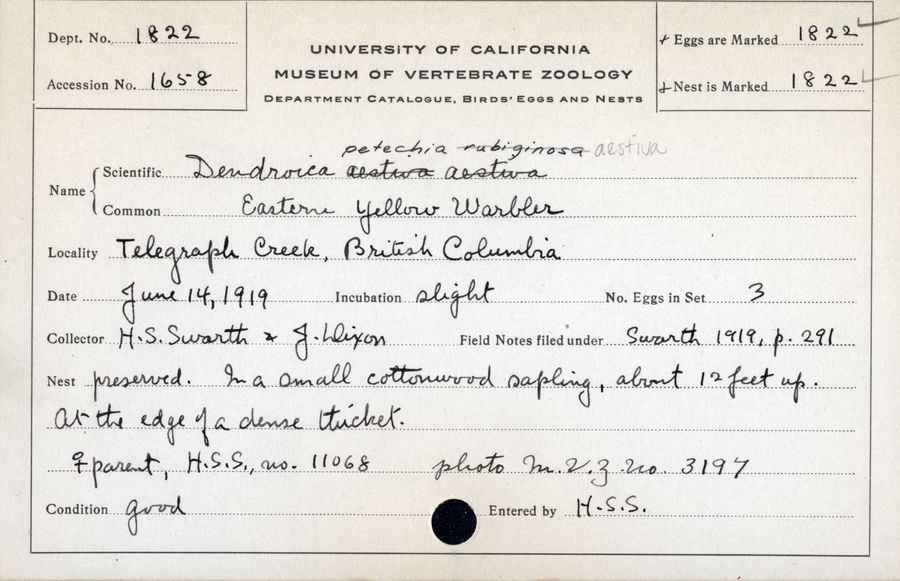 Dept. No. 1822
Accession No. 1658
UNIVERSITY OF CALIFORNIA
MUSEUM OF VERTEBRATE ZOOLOGY
DEPARTMENT CATALOGUE, BIRDS' EGGS AND NESTS
+ Eggs are Marked 1822
+ Nest is Marked 1822
petechia rubiginosa aestiva
Name Scientific Dendroica aestiva aestiva
Common Eastern Yellow Warbler
Locality Telegraph Creek, British Columbia
Date June 14, 1919 Incubation slight No. Eggs in Set 3
Collector H.S. Swarth & J. Dixon Field Notes filed under Swarth 1919, p. 291
Nest preserved. In a small cottonwood sapling, about 12 feet up.
At the edge of a dense thicket.
♀ parent, H.S.S., no. 11068 photo M.V.Z. no. 3197
Condition good Entered by H.S.S.